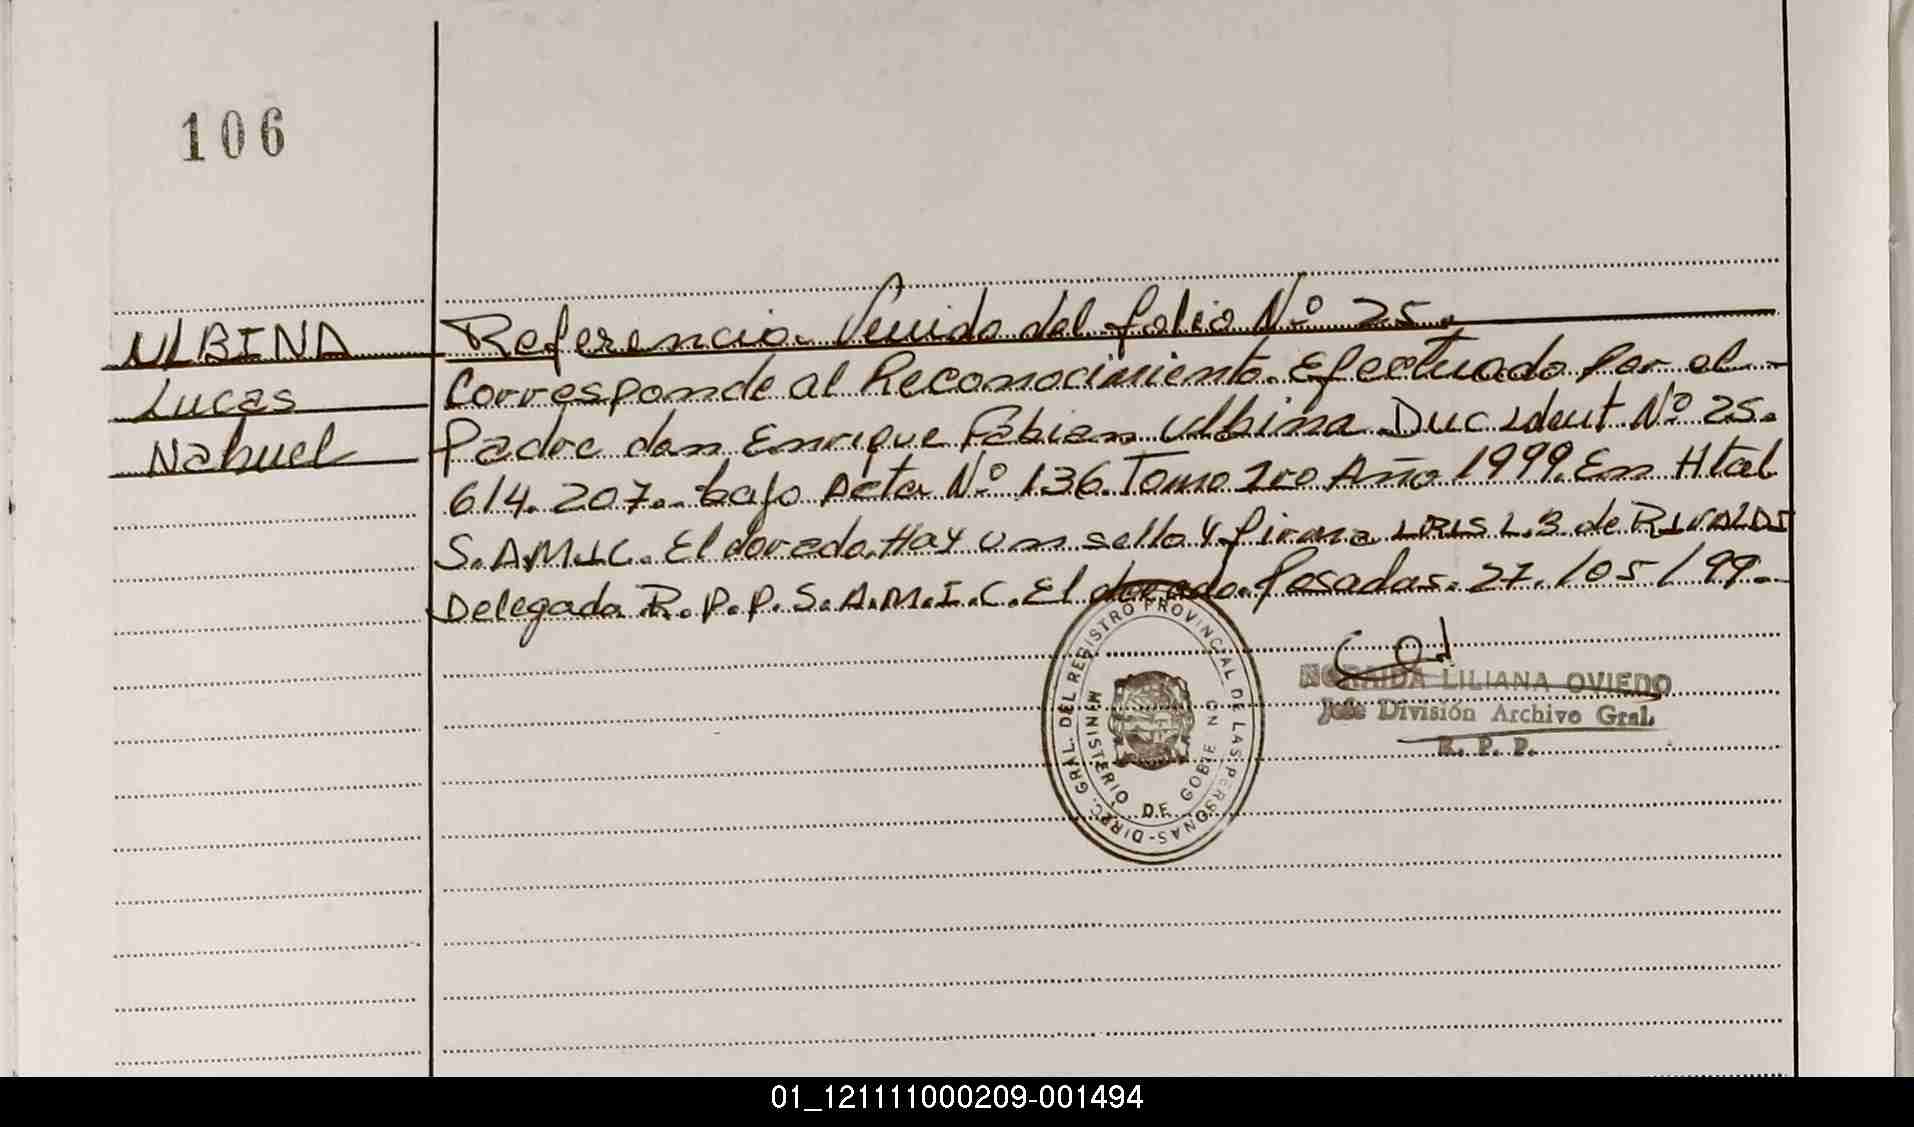 106
ULBINA
Lucas
Nahuel
Referencia. Venida del folio Nº 25.
Corresponde al Reconocimiento. Efectuado Por el
Padre don Enrique Fabian Ulbina Duc Ident Nº 25.
614.207. bajo Acta Nº 136. Tomo 1ro Año 1999. En Htal
S.A.M.I.C. Eldorado. Hay un sello y firma IRIS L. B de
Delegada R.P.P. S.A.M.I.C. Eldorado. Posadas. 27./05/99.
DIREC. GRAL. DEL REGISTRO PROVINCIAL DE LAS PERSONAS-
MINISTERIO DE GOBIERNO
NORAIDA LILIANA OVIEDO
Jefe División Archivo Gral.
R. P. P.
01_121111000209-001494